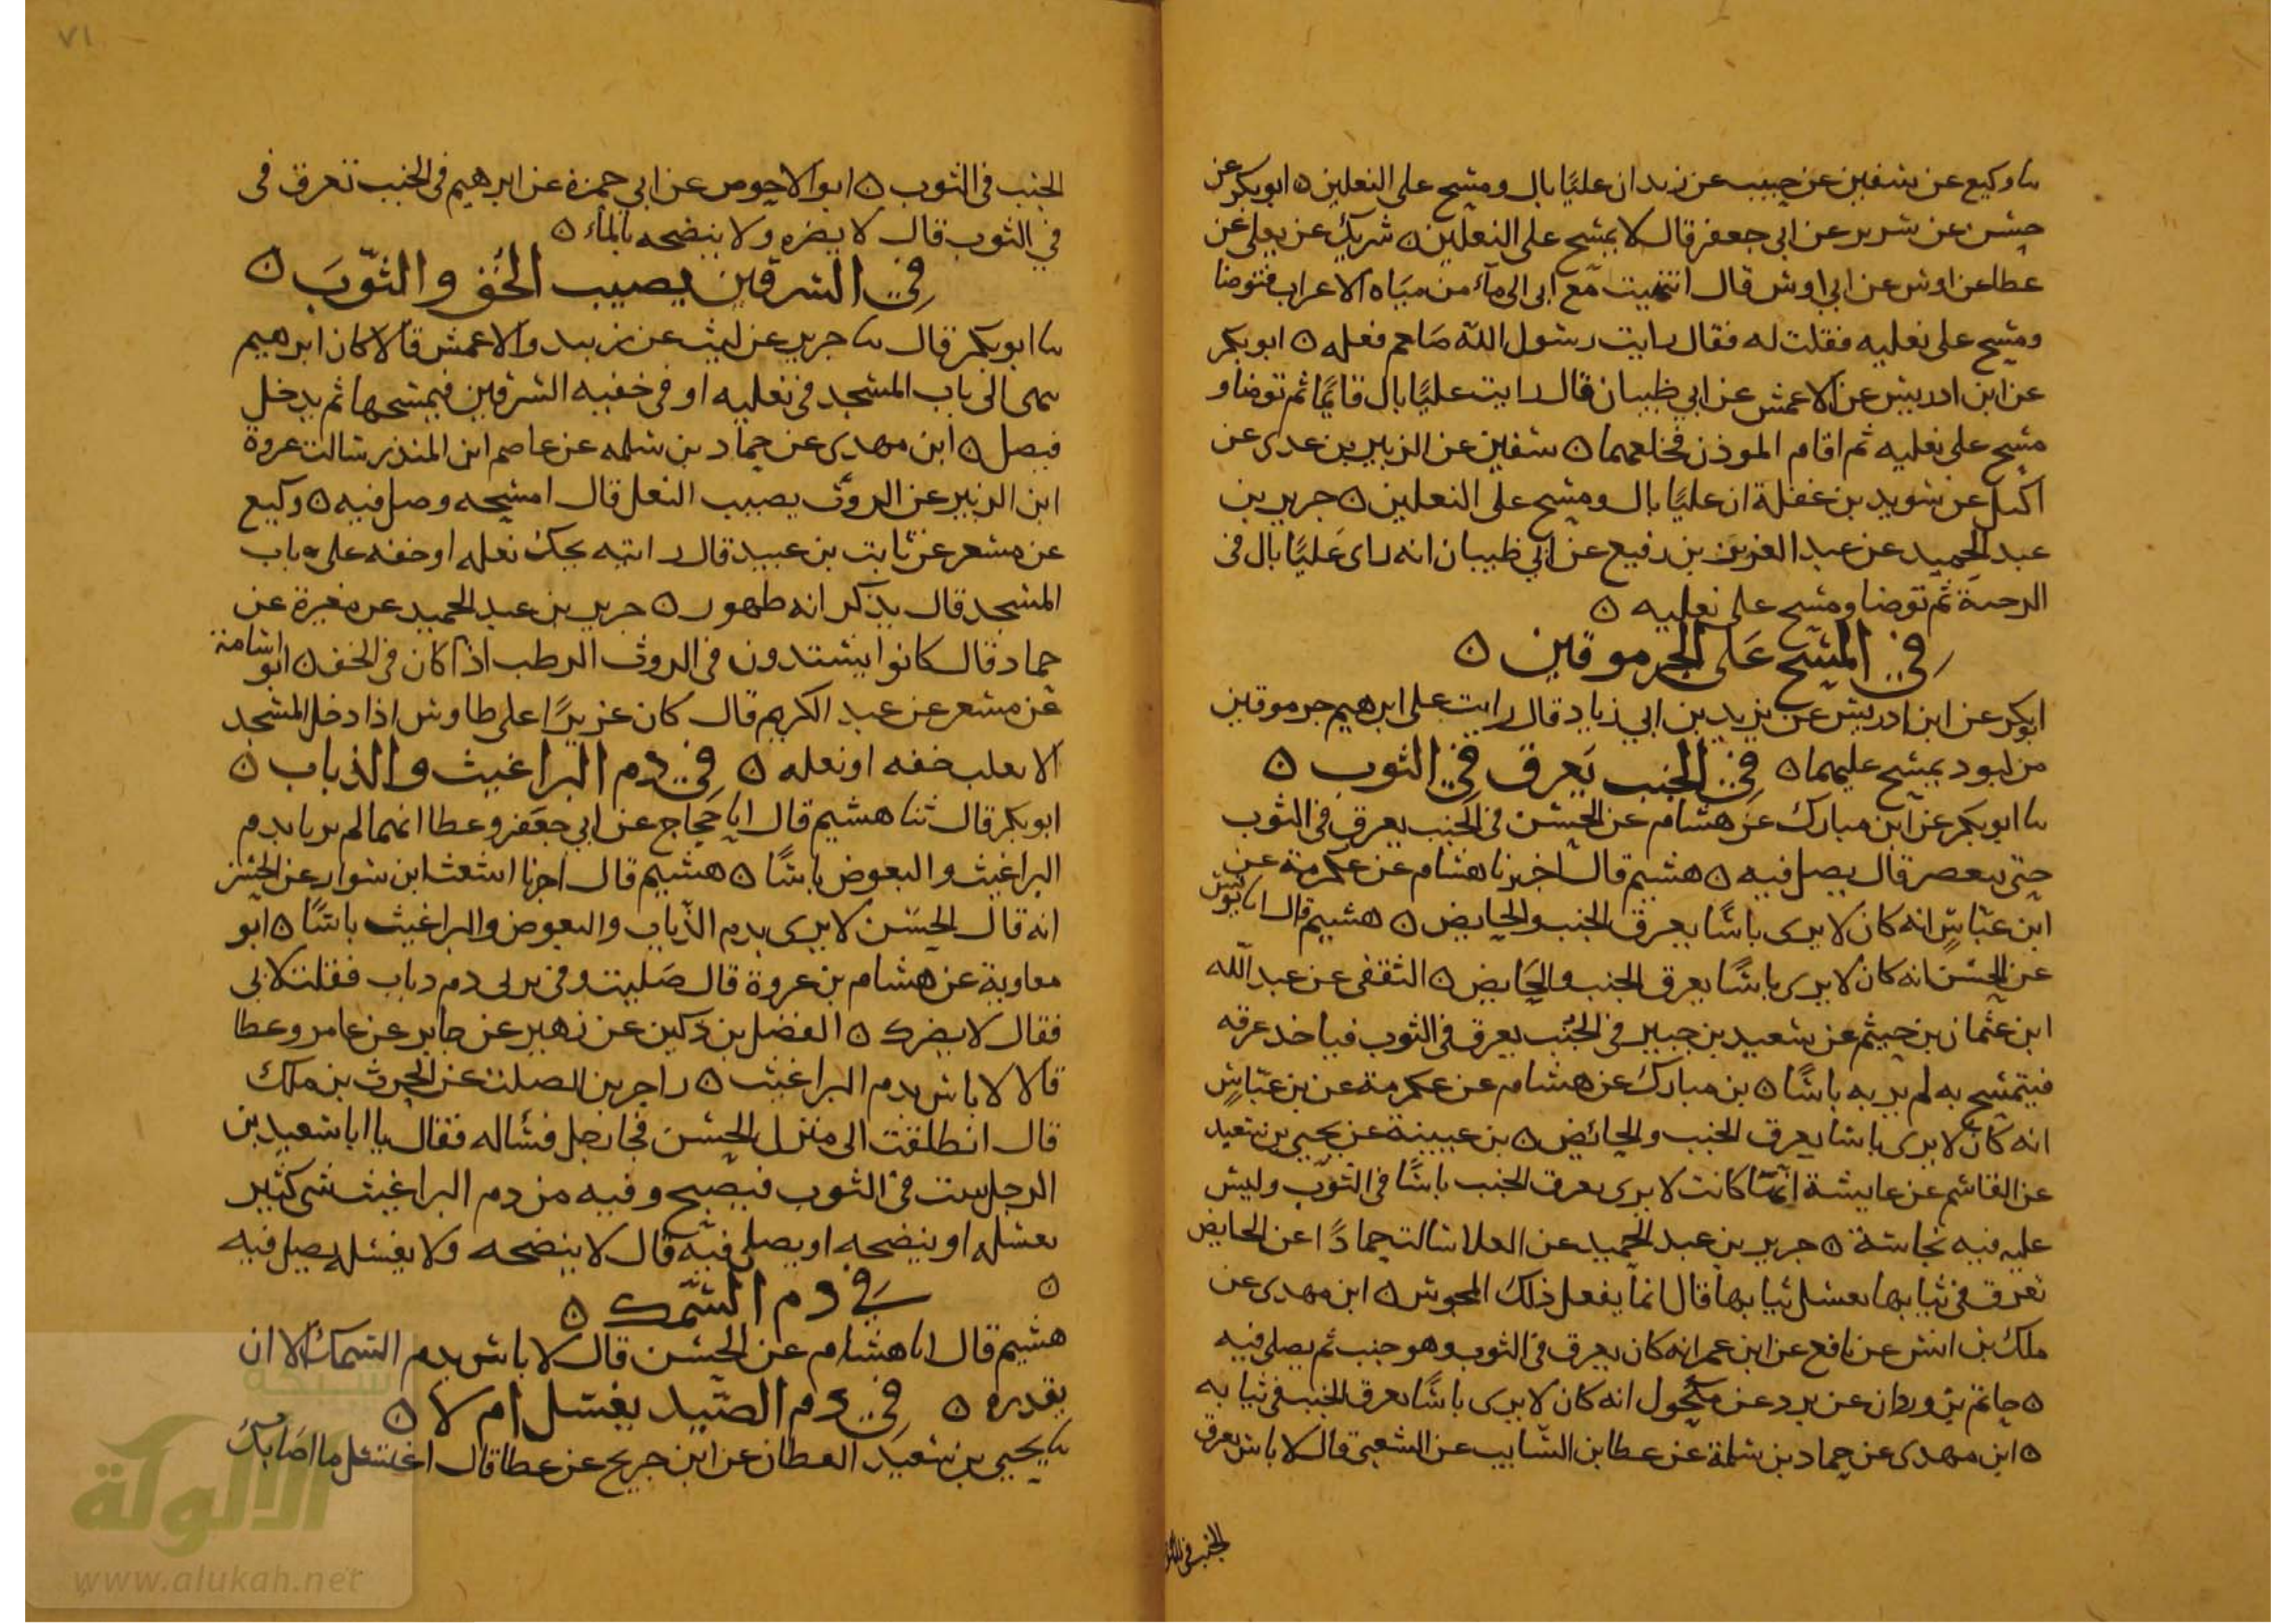 ثنا وكيع عن سفين عن حبيب عن زيد ان عليًا بال ومسح على النعلين ه ابوبكر عن
حسن عن سرير عن ابي جعفر قال لا يمسح على النعلين ه شريك عن يعلى عن
عطا عن اوس عن ابي اوس قال انتهيت مع ابي الى مآء من مياه الاعراب فتوضا
ومسح على نعليه فقلت له فقال رايت رسول الله صلعم فعله ه ابوبكر
عن ابن ادريس عن الاعمش عن ابي ظبيان قال رايت عليًا بال قائمًا ثم توضا و
مسح على نعليه ثم اقام الموذن فخلعهما ه سفين عن الزبير بن عدي عن
اكيل عن سويد بن غفلة ان عليًا بال ومسح على النعلين ه جرير بن
عبد الحميد عن عبد العزيز بن رفيع عن ابي ظبيان انه راى عليًا بال في
الرحبة ثم توضا ومسح على نعليه ه
في المسح على الجرموقين ه
ابوبكر عن ابن ادريس عن يزيد بن ابي زياد قال رايت على ابرهيم جرموقين
من لبود يمسح عليهما ه في الجنب يعرق في الثوب ه
ثنا ابوبكر عن ابن مبارك عن هشام عن الحسن في الجنب يعرق في الثوب
حتى يعصر قال يصل فيه ه هشيم قال اخبرنا هشام عن عكرمة عن
ابن عباس انه كان لا يرى باسًا بعرق الجنب والحايض ه هشيم قال انا يونس
عن الحسن انه كان لا يرى باسًا بعرق الجنب والحايض ه الثقفى عن عبد الله
ابن عثمان بن خيثم عن سعيد بن جبير في الجنب يعرق في الثوب فياخد عرقه
فيتمسح به لم ير به باسًا ه بن مبارك عن هشام عن عكرمة عن بن عباس
انه كان لا يرى باسا بعرق الجنب والحائض ه بن عيينة عن يحيى بن سعيد
عن القاسم عن عايشة انها كانت لا يرى بعرق الجنب باسًا في الثوب وليس
عليه فيه نجاسة ه جرير بن عبد الحميد عن العلا سالت حمادًا عن الحايض
تعرق في ثيابها تغسل ثيابها قال انما يفعل ذلك المجوس ه ابن مهدى عن
ملك بن انس عن نافع عن ابن عمر انه كان يعرق في الثوب وهو جنب ثم يصلي فيه
ه حاتم بن وردان عن برد عن مكحول انه كان لا يرى باسًا بعرق الجنب في ثيابه
ه ابن مهدى عن حماد بن سلمة عن عطا بن السايب عن الشعبي قال لا باس بعرق
الجنب في الثوب
٧١
الجنب في الثوب ه ابوالاحوص عن ابي حمزة عن ابرهيم في الجنب تعرق في
في الثوب قال لا يضره ولا ينضحه بالماء ه
في السرقين يصيب الخف والثوب ه
ثنا ابوبكر قال ثنا جرير عن ليث عن زبيد والاعمش قالا كان ابرهيم
ينتهى الى باب المسجد في نعليه او في خفيه السرقين فيمسحها ثم يدخل
فيصل ه ابن مهدى عن حماد بن سلمه عن عاصم ابن المنذر سالت عروة
ابن الزبير عن الروث يصيب النعل قال امسحه وصل فيه ه وكيع
عن مسعر عن ثابت بن عبيد قال رايته يحك نعله او خفه على باب
المسجد قال يذكر انه طهور ه جرير بن عبد الحميد عن مغيرة عن
حماد قال كانوا يشتدون في الروث الرطب اذا كان في الخف ه ابواسامة
عن مسعر عن عبد الكريم قال كان عزيزًا على طاوس اذا دخل المسجد
الا يقلب خفه او نعله ه في دم البراغيث والذباب ه
ابوبكر قال ثنا هشيم قال انا حجاج عن ابي جعفر وعطا انهما لم يريا بدم
البراغيث والبعوض باسًا ه هشيم قال اخبرنا اشعث ابن سوار عن الحسن
انه قال الحسن لا يرى بدم الذباب والبعوض والبراغيث باسًا ه ابو
معاوية عن هشام بن عروة قال صليت وفي بردى دم دباب فقلت لابي
فقال لا يضرك ه الفضل بن دكين عن زهير عن جابر عن عامر وعطا
قالا لا باس بدم البراغيث ه راجز بن الصلت عن الحرث بن ملك
قال انطلقت الى منزل الحسن فجا رجل فسأله فقال يا ابا سعيد بن
الرجل يبيت في الثوب فيصبح وفيه من دم البراغيث شى كثير
يغسله او ينضحه او يصلي فيه قال لا ينضحه ولا يغسله يصل فيه
ه في دم السمك ه
هشيم قال انا هشام عن الحسن قال لا باس بدم السمك الا ان
يقدره ه في دم الصيد يغسل ام لا ه
ثنا يحيى بن سعيد القطان عن ابن جريج عن عطا قال اغسل ما اصابك
شبكة
الألوكة
www.alukah.net